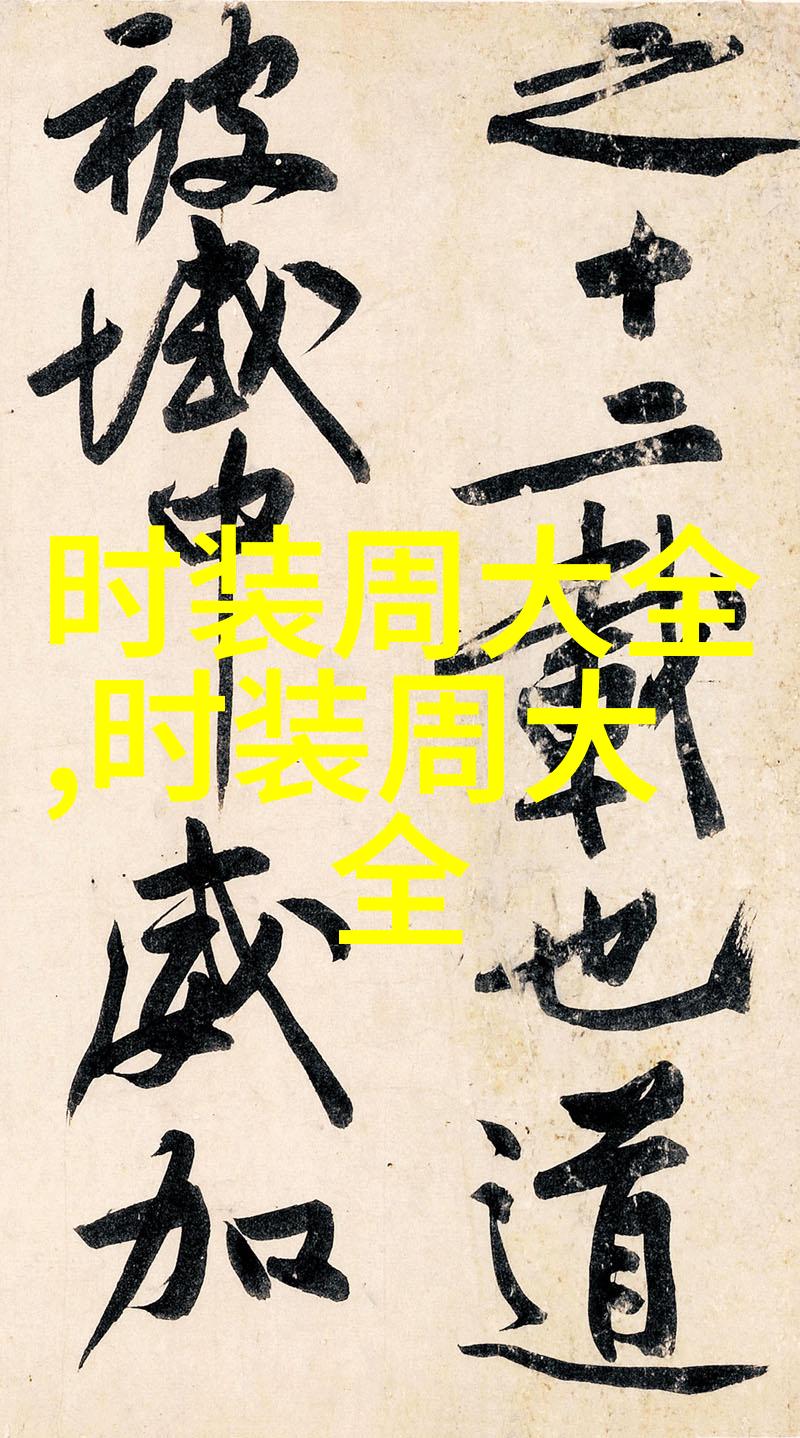 之十二載也道
被域中威加
时装周大全
,时装周大
全